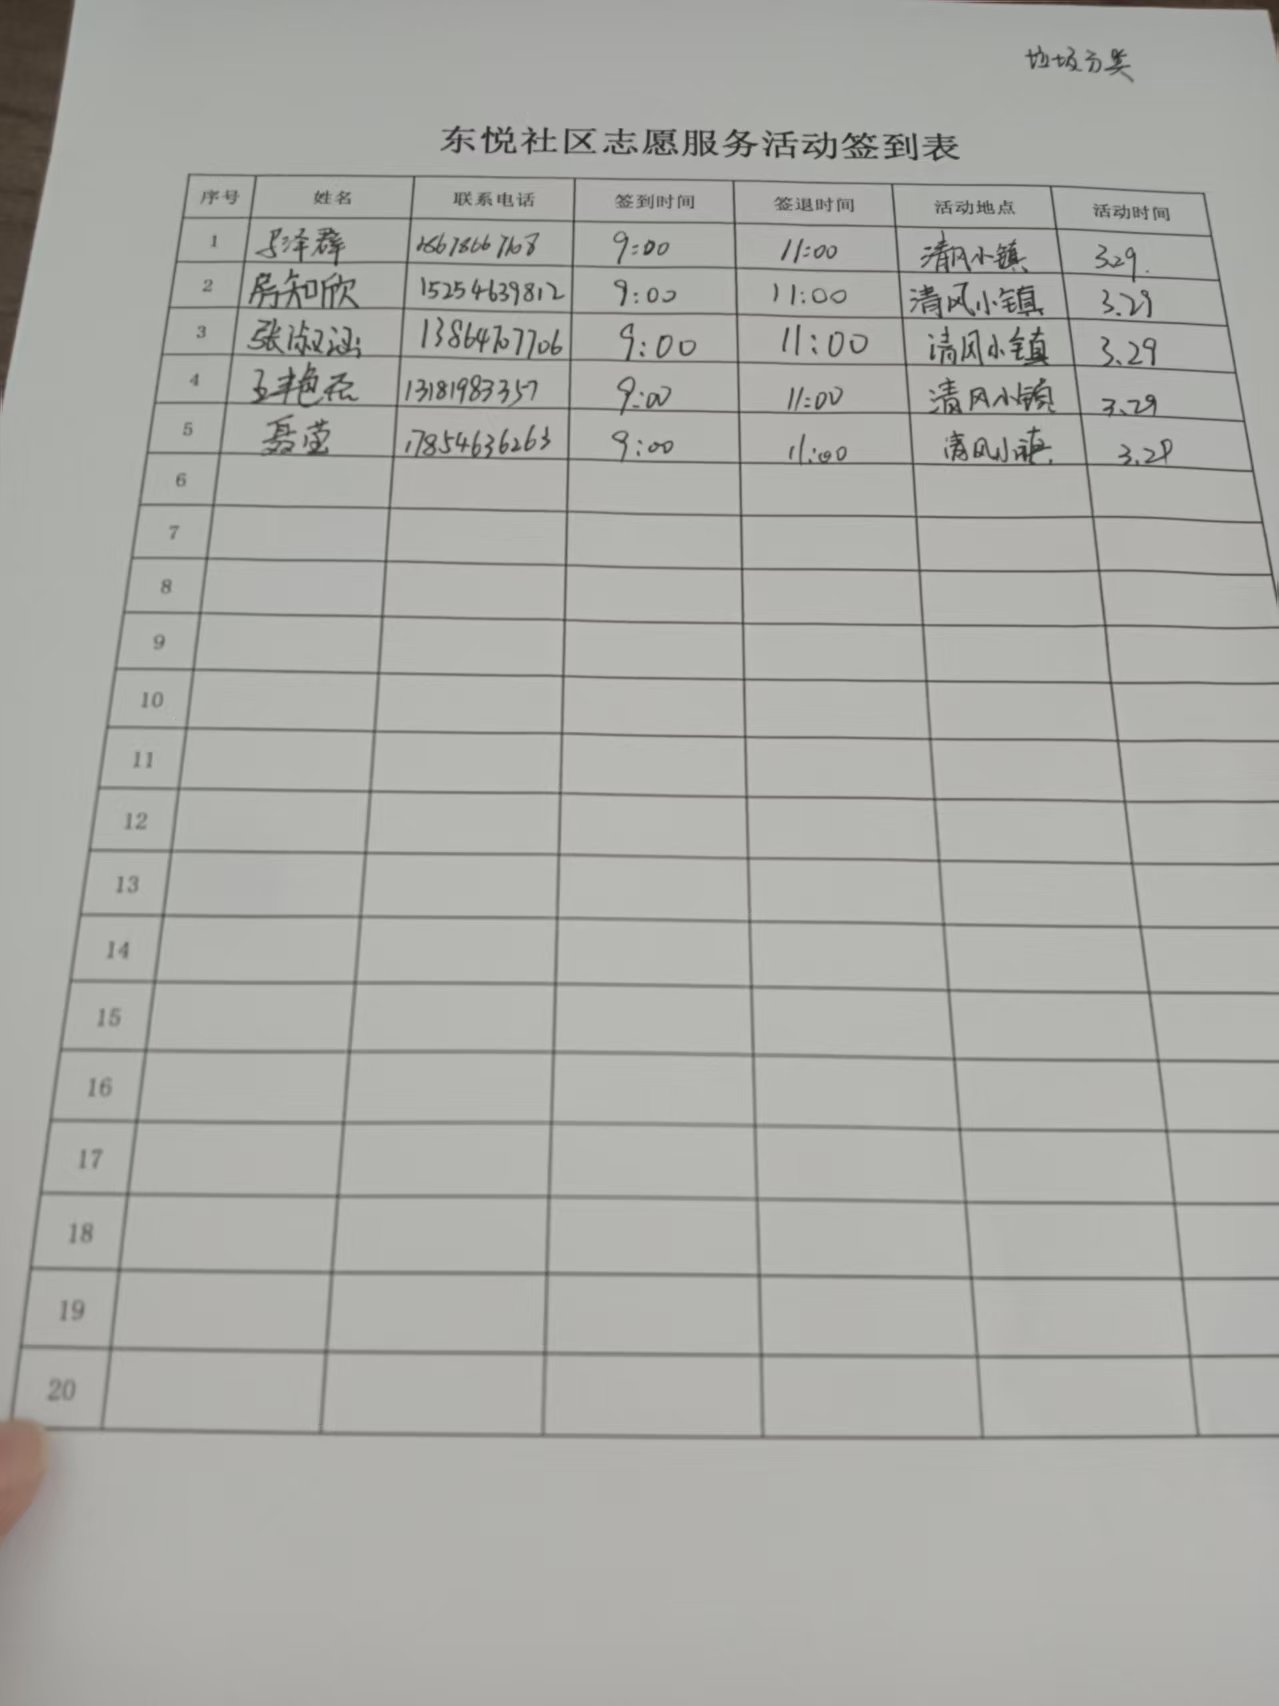 垃圾分类
东悦社区志愿服务活动签到表
序号 姓名 联系电话 签到时间 签退时间 活动地点 活动时间
1 9:00 11:00 清风小镇 3.29.
2 房知欣 15254639812 9:00 11:00 清风小镇 3.29
3 张淑涵 13864707706 9:00 11:00 清风小镇 3.29
4 13181983357 9:00 11:00 清风小镇 3.29
5 聂莹 17854636263 9:00 11:00 清风小镇 3.29
6
7
8
9
10
11
12
13
14
15
16
17
18
19
20